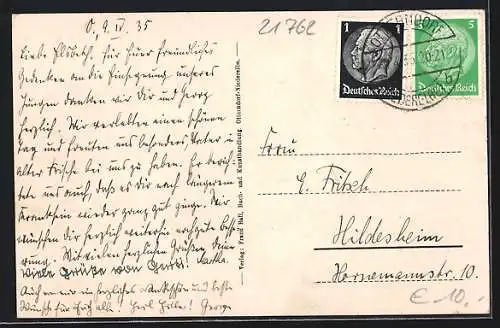 O. 9. IV. 35
21762
Liebe Elsbeth. Für Euer freundliches
Gedenken an die Einsegnung unseres
Jungen danken wir Dir und Georg
herzlich. Wir verlebten einen schönen
Tag und freuten uns besonders, Vater in
alter Frische bei uns zu haben. Er berich-
tete uns auch, daß es Dir nach längerem
Kranksein wieder ganz gut ginge. Wir
wünschen Dir herzlich weiterhin recht gute Besse-
rung. Mit vielen herzlichen Grüßen, Deine
Viele Grüße von
Auch von mir ein herzliches Dankschön und beste
Wünsche für Euch alle! Heil Hitler! Georg
Verlag: Franz Hall, Buch- und Kunsthandlung, Otterndorf-Niederelbe.
1
Deutsches Reich
5
Deutsches Reich
Frau
E. Fritsch
Hildesheim
Hornemannstr. 10.
€ 10,-